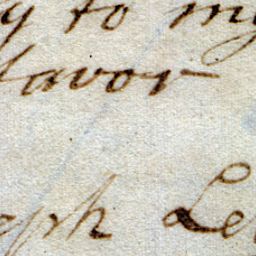 y to my
favor
eph Le